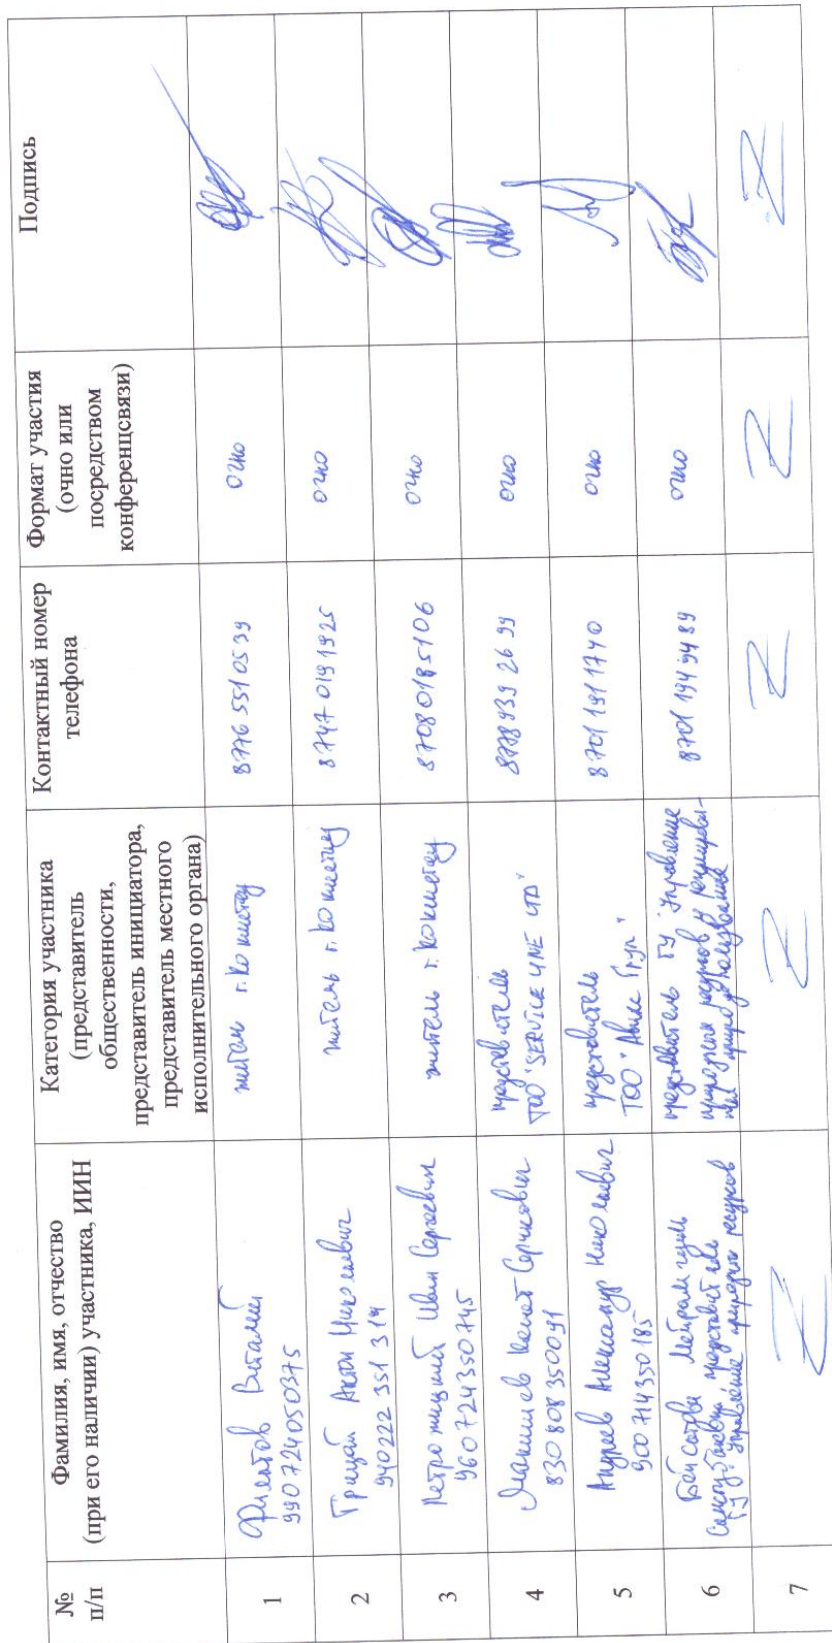 № п/п
Фамилия, имя, отчество (при его наличии) участника, ИИН
Категория участника (представитель общественности, представитель инициатора, представитель местного исполнительного органа)
Контактный номер телефона
Формат участия (очно или посредством конференцсвязи)
Подпись
1
Филатов Виталий
990724050375
житель г. Кокшетау
8776 551 05 39
очно
2
Грицай Антон Николаевич
940222 351 314
житель г. Кокшетау
8747 019 1925
очно
3
Иван Сергеевич
960724350745
житель г. Кокшетау
87080185106
очно
4
Канат Серикович
830808350091
представитель
ТОО "SERVICE LINE LTD"
8778 939 26 99
очно
5
Андреев Александр Николаевич
900714350185
представитель
ТОО "Групп"
8701 191 1740
очно
6
Бейсатова Мейрамгуль
представитель
ГУ Управление природных ресурсов
представитель ГУ "Управление
природных ресурсов и регулирова-
ния природопользования
8701 194 94 89
очно
7
Z
Z
Z
Z
Z